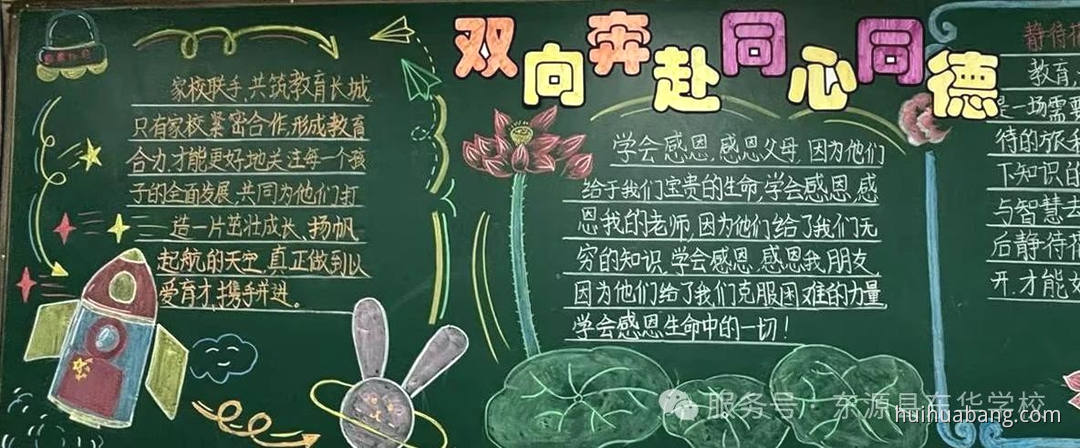 双向奔赴同心同德
家校联手,共筑教育长城
只有家校紧密合作,形成教育
合力,才能更好地关注每一个孩
子的全面发展,共同为他们打
造一片茁壮成长、扬帆
起航的天空,真正做到以
爱育才,携手并进。
学会感恩,感恩父母,因为他们
给于我们宝贵的生命,学会感恩,感
恩我的老师,因为他们给了我们无
穷的知识,学会感恩,感恩我朋友,
因为他们给了我们克服困难的力量,
学会感恩生命中的一切!
静待
教育,
是一场需要
待的旅
下知识的
与智慧去
后静待
开,才能
服务号·东源县东华学校
huihuabang.com